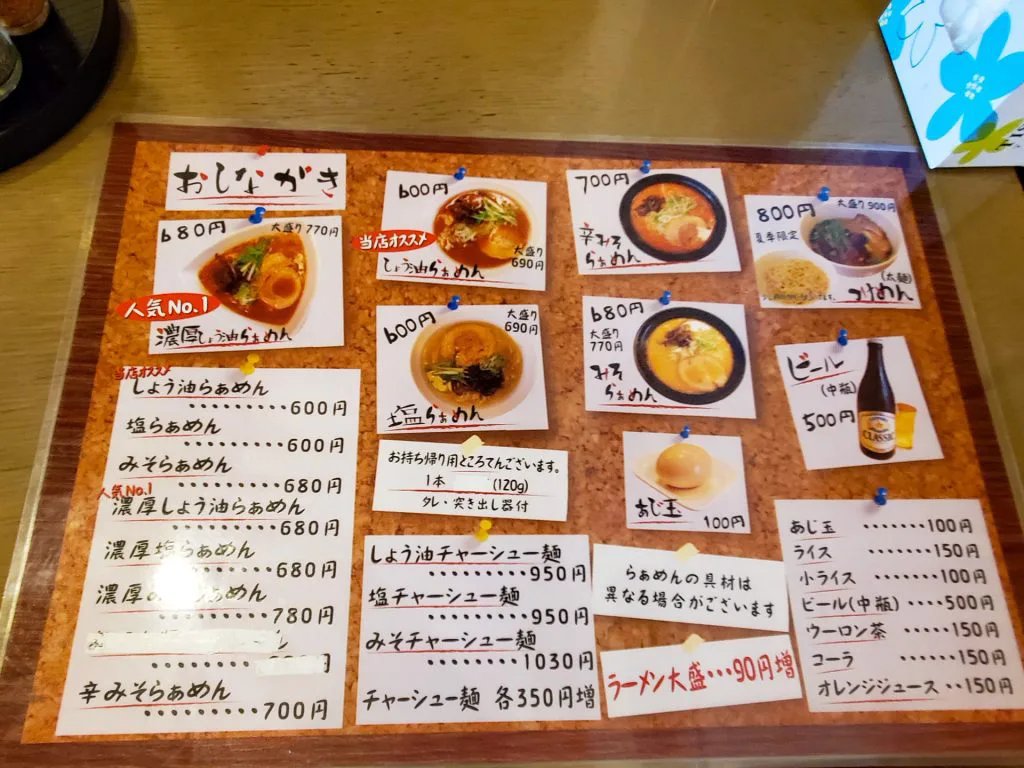 おしながき
680円
大盛り 770円
人気No.1
濃厚しょう油らぁめん
600円
当店オススメ
大盛り
690円
しょう油らぁめん
700円
辛みそ
らぁめん
800円
大盛り 900円
夏季限定
(太麺)
つけめん
600円
大盛り
690円
塩らぁめん
680円
大盛り
770円
みそ
らぁめん
ビール
(中瓶)
500円
CLASSIC
当店オススメ
しょう油らぁめん
・・・・・・・・・600円
塩らぁめん
・・・・・・・・・600円
みそらぁめん
・・・・・・・・・680円
人気No.1
濃厚しょう油らぁめん
・・・・・・・・・680円
濃厚塩らぁめん
・・・・・・・・・680円
濃厚みそらぁめん
・・・・・・・・・780円
辛みそらぁめん
・・・・・・・・・700円
お持ち帰り用ところてんございます。
1本 (120g)
タレ・突き出し器付
あじ玉
100円
しょう油チャーシュー麺
・・・・・・・・・950円
塩チャーシュー麺
・・・・・・・・・950円
みそチャーシュー麺
・・・・・・・・1030円
チャーシュー麺 各350円増
らぁめんの具材は
異なる場合がございます
ラーメン大盛・・・90円増
あじ玉 ・・・・・・・100円
ライス ・・・・・・・150円
小ライス ・・・・・・100円
ビール(中瓶) ・・・・500円
ウーロン茶 ・・・・・150円
コーラ ・・・・・・150円
オレンジジュース ・・150円